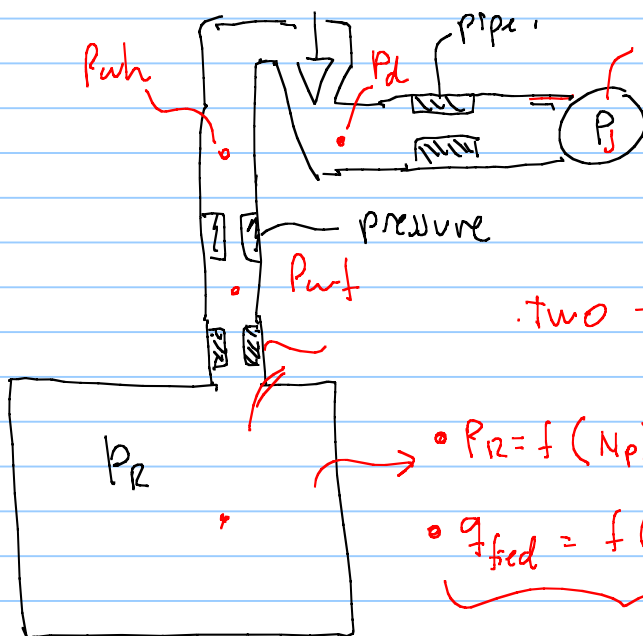 pipe.
Pwh
Pd
PJ
pressure
Pwf
.two
PR
• PR = f ( Np
• qfied = f (